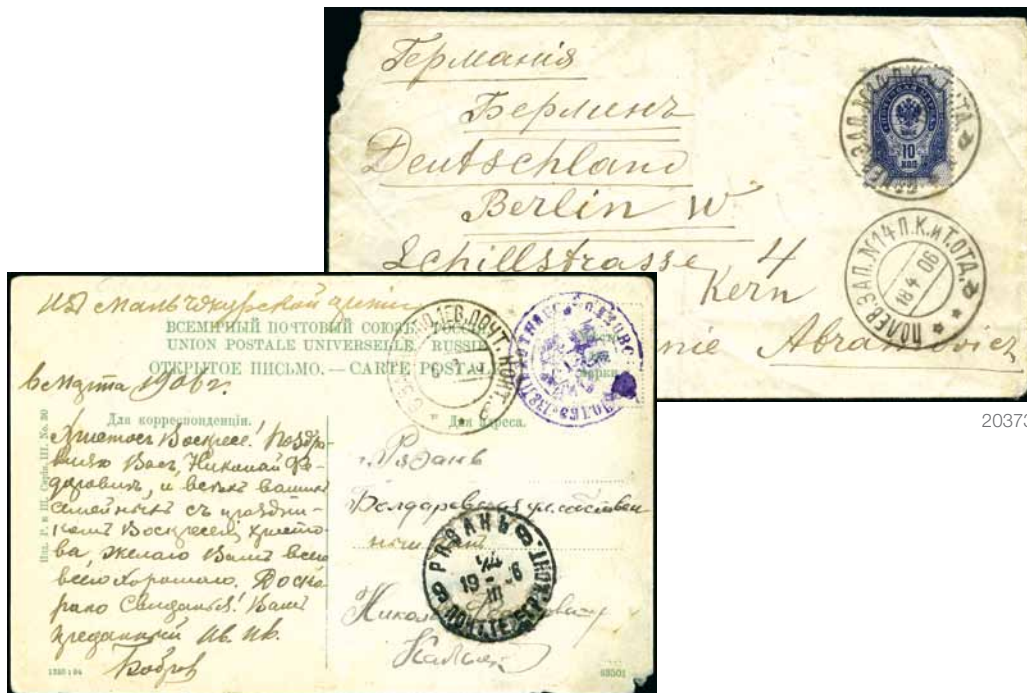 Германія
Берлинъ
Deutschland
Berlin W
Schillstrasse 4
Kern
Abramowicz
10
КОП
ПОЛЕВ.ЗАП. N14 П.К.и Т.ОТД.
18 4 06
20373
изъ Маньчжурской арміи
ВСЕМІРНЫЙ ПОЧТОВЫЙ СОЮЗЪ. РОССІЯ
UNION POSTALE UNIVERSELLE. RUSSIE
ОТКРЫТОЕ ПИСЬМО. — CARTE POSTALE
6 марта 1906 г.
Для корреспонденціи.
Для адреса.
Христосъ Воскресе! Поздр-
вляю Васъ, Николай Фе-
доровичъ, и всѣхъ вашихъ
семейныхъ съ праздни-
комъ Воскресенія Христо-
ва, желаю Вамъ всего
всего хорошаго. До ско-
раго свиданья! Вамъ
преданный Ив. Ив.
Бобров
г. Рязань
Николаю Федоровичу
РЯЗАНЬ
19 III 6
ПОЧТ.ТЕЛ.КОНТ.
Изд. Р. и Ш. Серія. III. No. 30
1235 i 94
63501